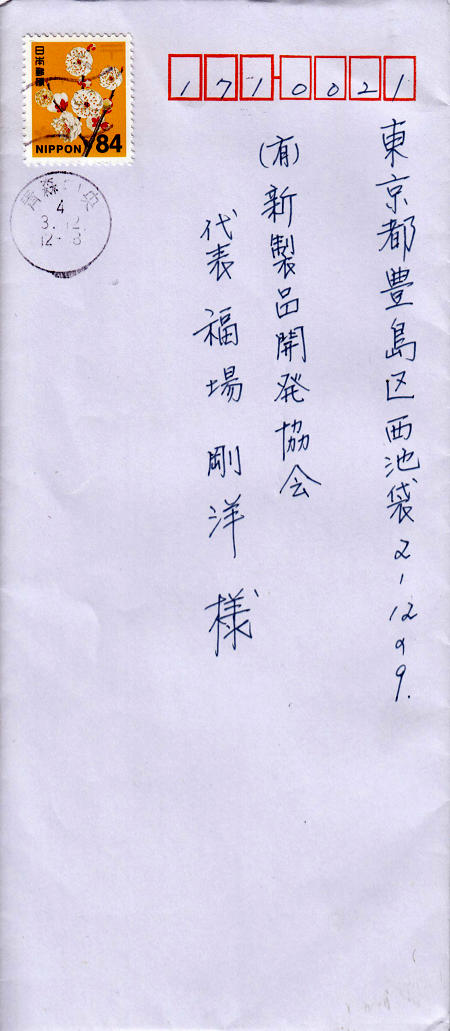 日本郵便
NIPPON 84
青森中央
4
3.12
12-18
171-0021
東京都豊島区西池袋2-12の9.
(有)新製品開発協会
代表 福場 剛洋 様